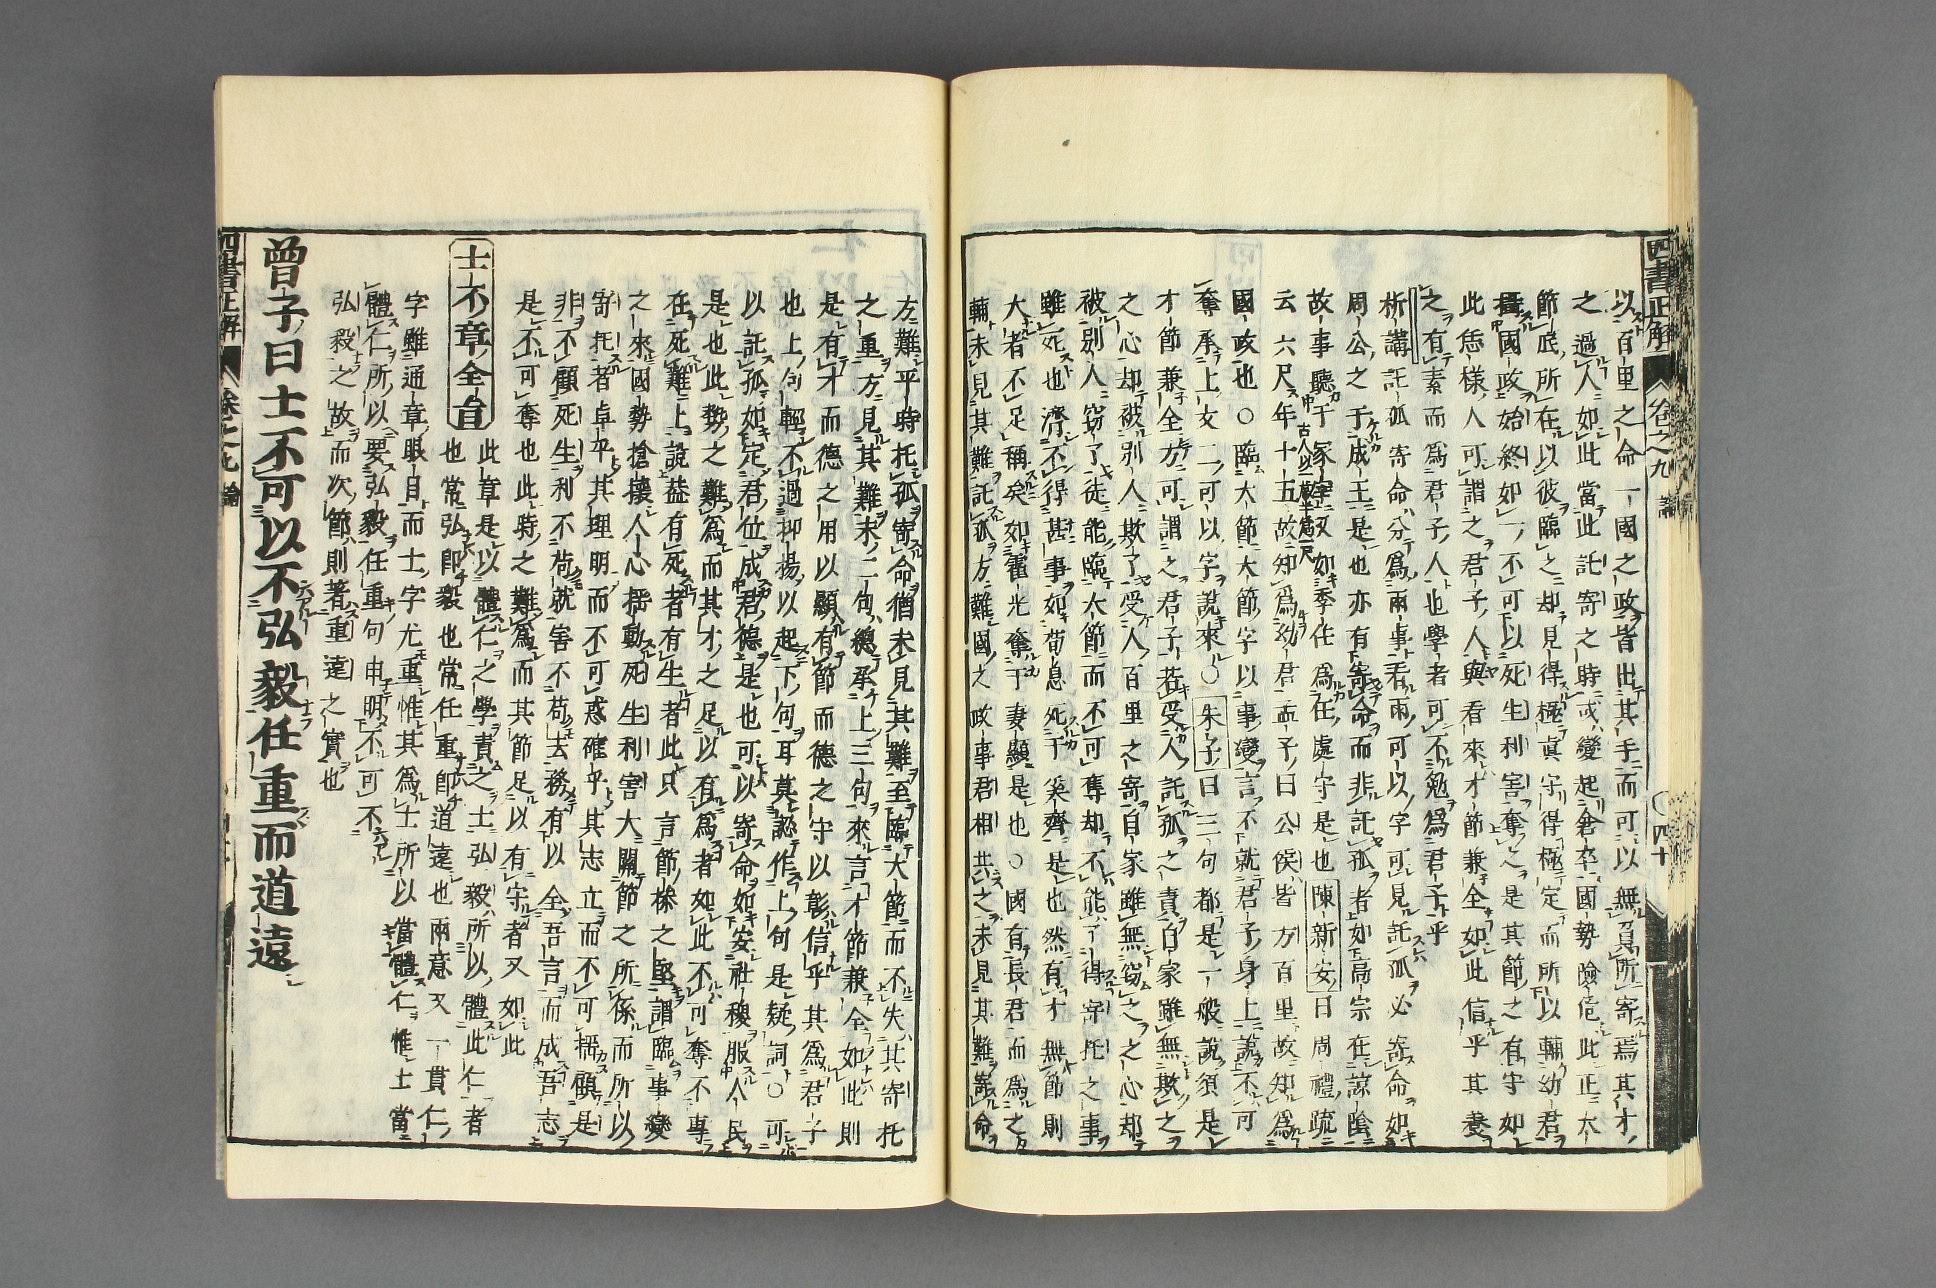 四書正解 卷之九 論 四十
以百里之命一國之政皆出其手而可以無負所寄焉其才
之過人如此當此託寄之時或變起倉卒國勢險危此正大
節底所在以彼臨之却見得極眞守得極定而所以輔幼君
攝國政始終如一不可以死生利害奪之是其節之有守如
此恁樣人可謂之君子人與看來才節兼全如此信乎其
之有素而爲君子人也學者可不勉爲君子乎
析講託孤寄命分爲兩事看兩可以字可見託孤必寄命如
周公之于成王是也亦有寄命而非託孤者如高宗在諒陰
故事聽于家宰又如季任爲任處守是也陳新安曰周禮疏
云六尺年十五古人以二歲半爲一尺故知爲幼君孟子曰公侯皆方百里故知爲
國政也○臨大節大節字以事變言不就君子身上說不可
奪承上文二可以字說來○朱子曰三句都是一般說須是
才節兼全方可謂之君子若受人託孤之責自家雖無欺之
之心却被別人欺了受人百里之寄自家雖無竊之之心却
被別人竊了徒能臨大節而不可奪却不能了得寄托之事
雖死也濟不得甚事如荀息死于奚齊是也然有才無節則
大者不足稱矣如霍光奪于妻顯是也○國有長君而爲之
輔未見其難託孤方難國之政事君相共之未見其難寄命
方難平時托孤寄命猶未見其難至臨大節而不失其寄托
之重方見其難未二句總承上三句來言才節兼全如此則
是有才而德之用以顯有節而德之守以彰信乎其爲君子
也上句輕不過抑揚以起下句耳莫認作上句是疑詞○可
以託孤如定君位成君德是也可以寄命如安社稷服人民
是也此勢之難爲而其才之足以有爲者如此不可奪不專
在死難上說益有死者有生者此只言節操之堅謂臨事變
之來國勢搶攘人心揺動死生利害大關節之所係而所以
寄托者卓乎其理明而不可惑確乎其志立而不可揺顧是
非不顧死生利不苟就害不苟去務有以全吾言而成吾志
是不可奪也此時之難爲而其節足以有守者又如此
士不章全旨
此章是以體仁之學責之士弘毅所以體此仁者
也常弘卽毅也常任重卽道遠也兩意又一貫仁
字雖通章眼目而士字尤重惟其爲士所以當體仁惟士當
體仁所以要弘毅任重句申明不可不
弘毅之故而次節則著重遠之實也
曾子曰士不可以不弘毅任重而道遠
四書正解 卷之九 論